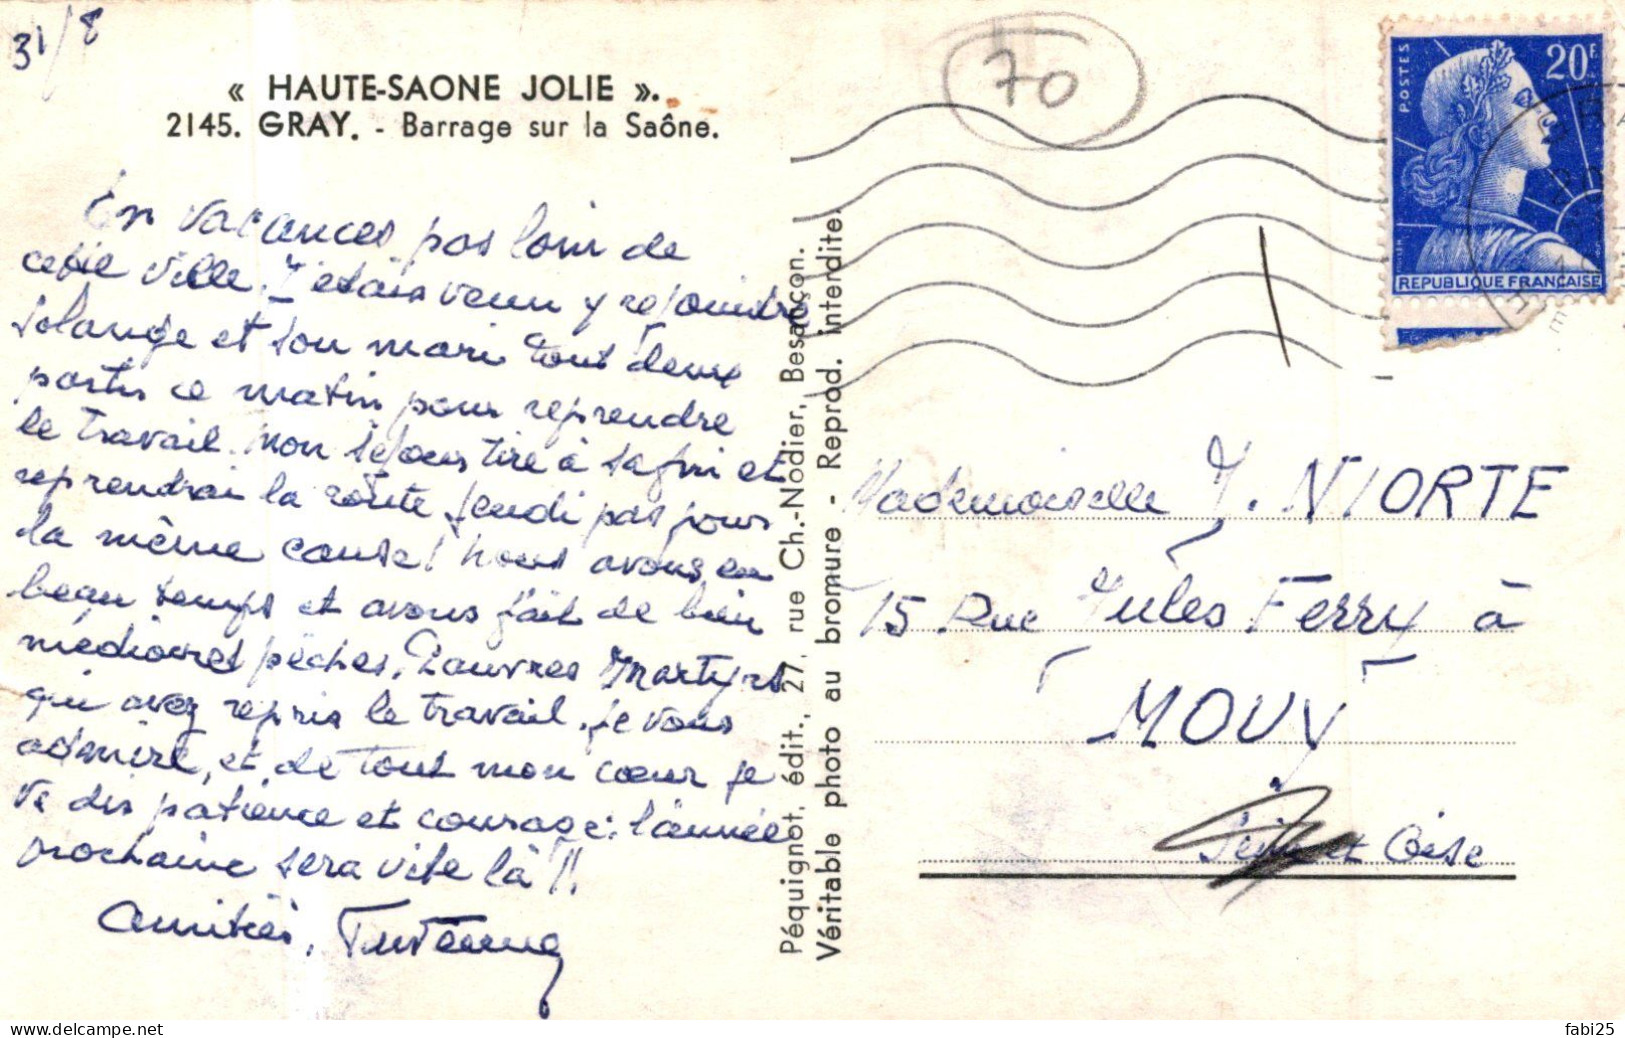 31/8
« HAUTE-SAONE JOLIE ».
2145. GRAY. - Barrage sur la Saône.
En vacances pas loin de
cette ville. J'étais venu y rejoindre
Solange et son mari tout deux
partis ce matin pour reprendre
le travail. Mon séjour tire à sa fin et
reprendrai la route jeudi pas pour
la même cause! nous avons eu
beau temps et avons fait de bien
médiocres pêches. Pauvres Martyrs
qui avez repris le travail. je vous
admire, et de tout mon cœur je
vs dis patience et courage: l'année
prochaine sera vite là!!
Amitiés,
Péquignot, édit., 27, rue Ch.-Nodier, Besançon.
Véritable photo au bromure - Reprod. interdite.
70
POSTES
20F
REPUBLIQUE FRANÇAISE
Mademoiselle J. NIORTE
15 Rue Jules Ferry à
MOUY
Oise
delcampe.net
fabi25